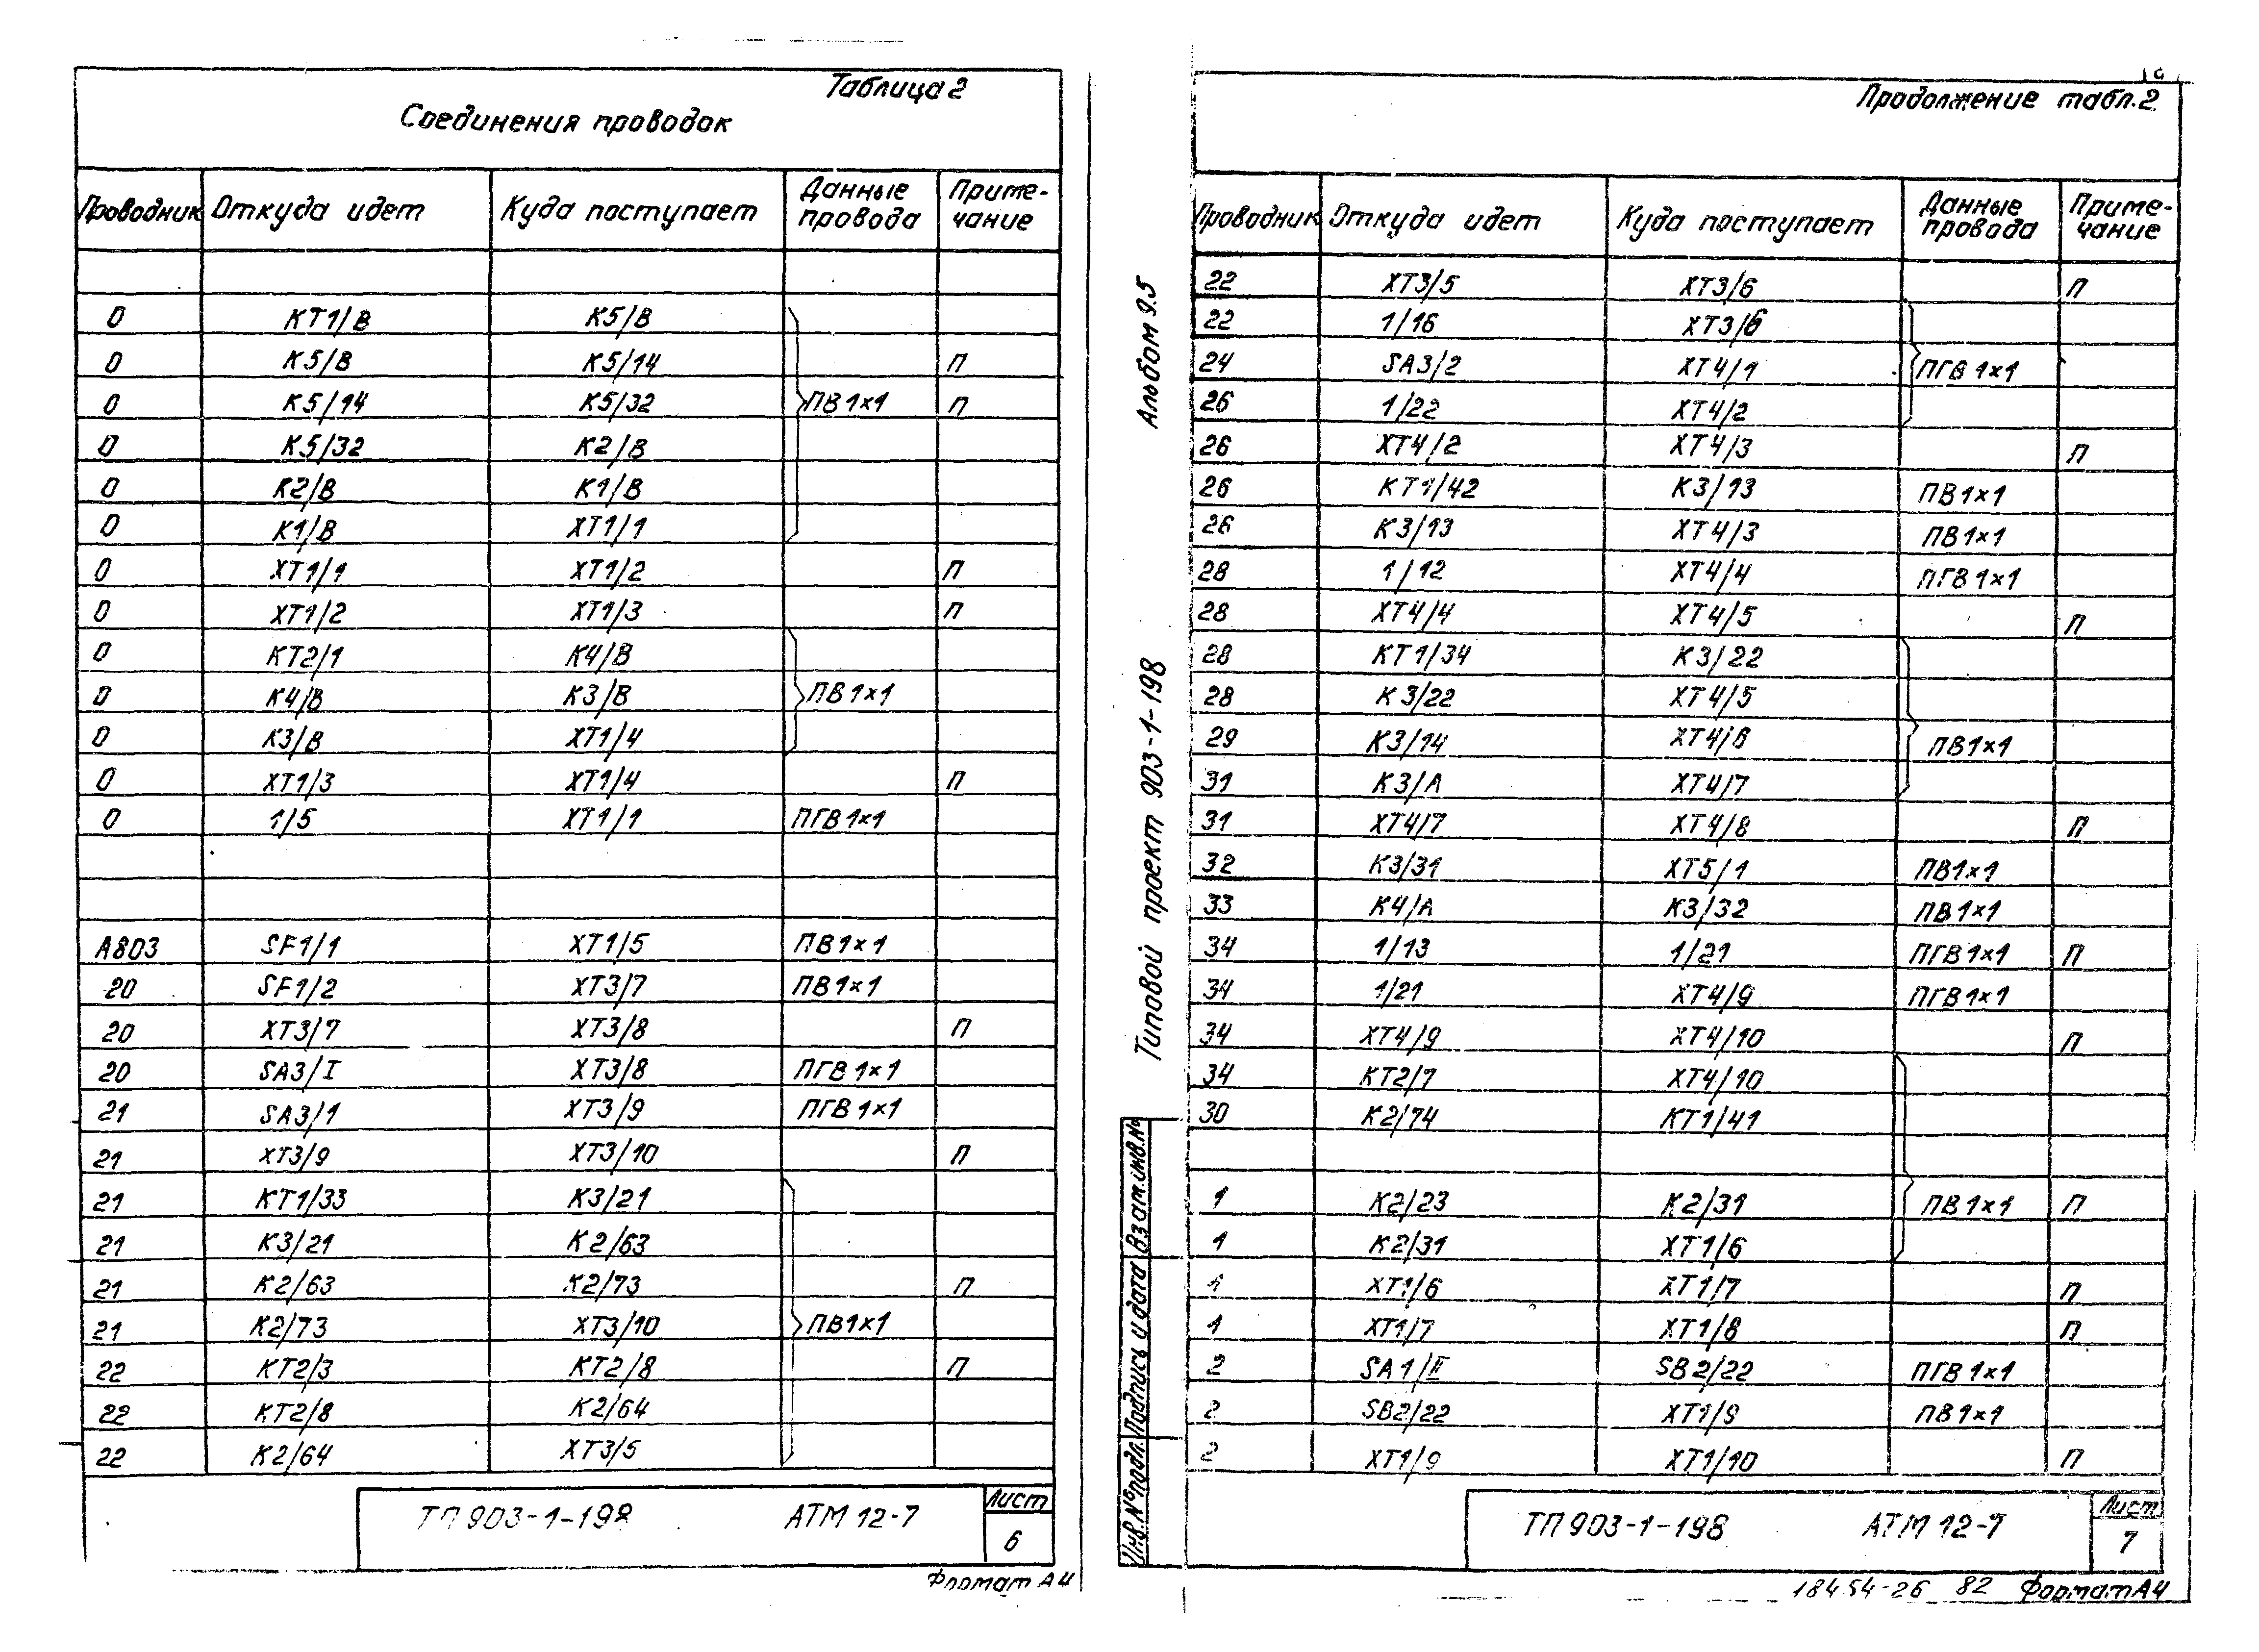 Таблица 2
Соединения проводок
Проводник Откуда идет Куда поступает Данные провода Приме-чание
0 КТ1/В К5/В
0 К5/В К5/14 П
0 К5/14 К5/32 ПВ1×1 П
0 К5/32 К2/В
0 К2/В К1/В
0 К1/В ХТ1/1
0 ХТ1/1 ХТ1/2 П
0 ХТ1/2 ХТ1/3 П
0 КТ2/1 К4/В
0 К4/В К3/В ПВ1×1
0 К3/В ХТ1/4
0 ХТ1/3 ХТ1/4 П
0 1/5 ХТ1/1 ПГВ1×1
А803 SF1/1 ХТ1/5 ПВ1×1
20 SF1/2 ХТ3/7 ПВ1×1
20 ХТ3/7 ХТ3/8 П
20 SA3/I ХТ3/8 ПГВ1×1
21 SA3/1 ХТ3/9 ПГВ1×1
21 ХТ3/9 ХТ3/10 П
21 КТ1/33 К3/21
21 К3/21 К2/63
21 К2/63 К2/73 П
21 К2/73 ХТ3/10 ПВ1×1
22 КТ2/3 КТ2/8 П
22 КТ2/8 К2/64
22 К2/64 ХТ3/5
ТП 903-1-198 АТМ 12-7 Лист
6
Формат А4
Продолжение табл.2
Проводник Откуда идет Куда поступает Данные провода Приме-чание
22 ХТ3/5 ХТ3/6 П
22 1/16 ХТ3/6
24 SA3/2 ХТ4/1 ПГВ1×1
26 1/22 ХТ4/2
26 ХТ4/2 ХТ4/3 П
26 КТ1/42 К3/13 ПВ1×1
26 К3/13 ХТ4/3 ПВ1×1
28 1/12 ХТ4/4 ПГВ1×1
28 ХТ4/4 ХТ4/5 П
28 КТ1/34 К3/22
28 К3/22 ХТ4/5
29 К3/14 ХТ4/6 ПВ1×1
31 К3/А ХТ4/7
31 ХТ4/7 ХТ4/8 П
32 К3/31 ХТ5/1 ПВ1×1
33 К4/А К3/32 ПВ1×1
34 1/13 1/21 ПГВ1×1 П
34 1/21 ХТ4/9 ПГВ1×1
34 ХТ4/9 ХТ4/10 П
34 КТ2/7 ХТ4/10
30 К2/74 КТ1/41
1 К2/23 К2/31 ПВ1×1 П
1 К2/31 ХТ1/6
1 ХТ1/6 ХТ1/7 П
1 ХТ1/7 ХТ1/8 П
2 SA1/II SB2/22 ПГВ1×1
2 SB2/22 ХТ1/9 ПВ1×1
2 ХТ1/9 ХТ1/10 П
ТП 903-1-198 АТМ 12-7 Лист
7
18454-26 82 Формат А4
Альбом 9.5
Типовой проект 903-1-198
Взам.инв.№
Подпись и дата
Инв.№ подл.